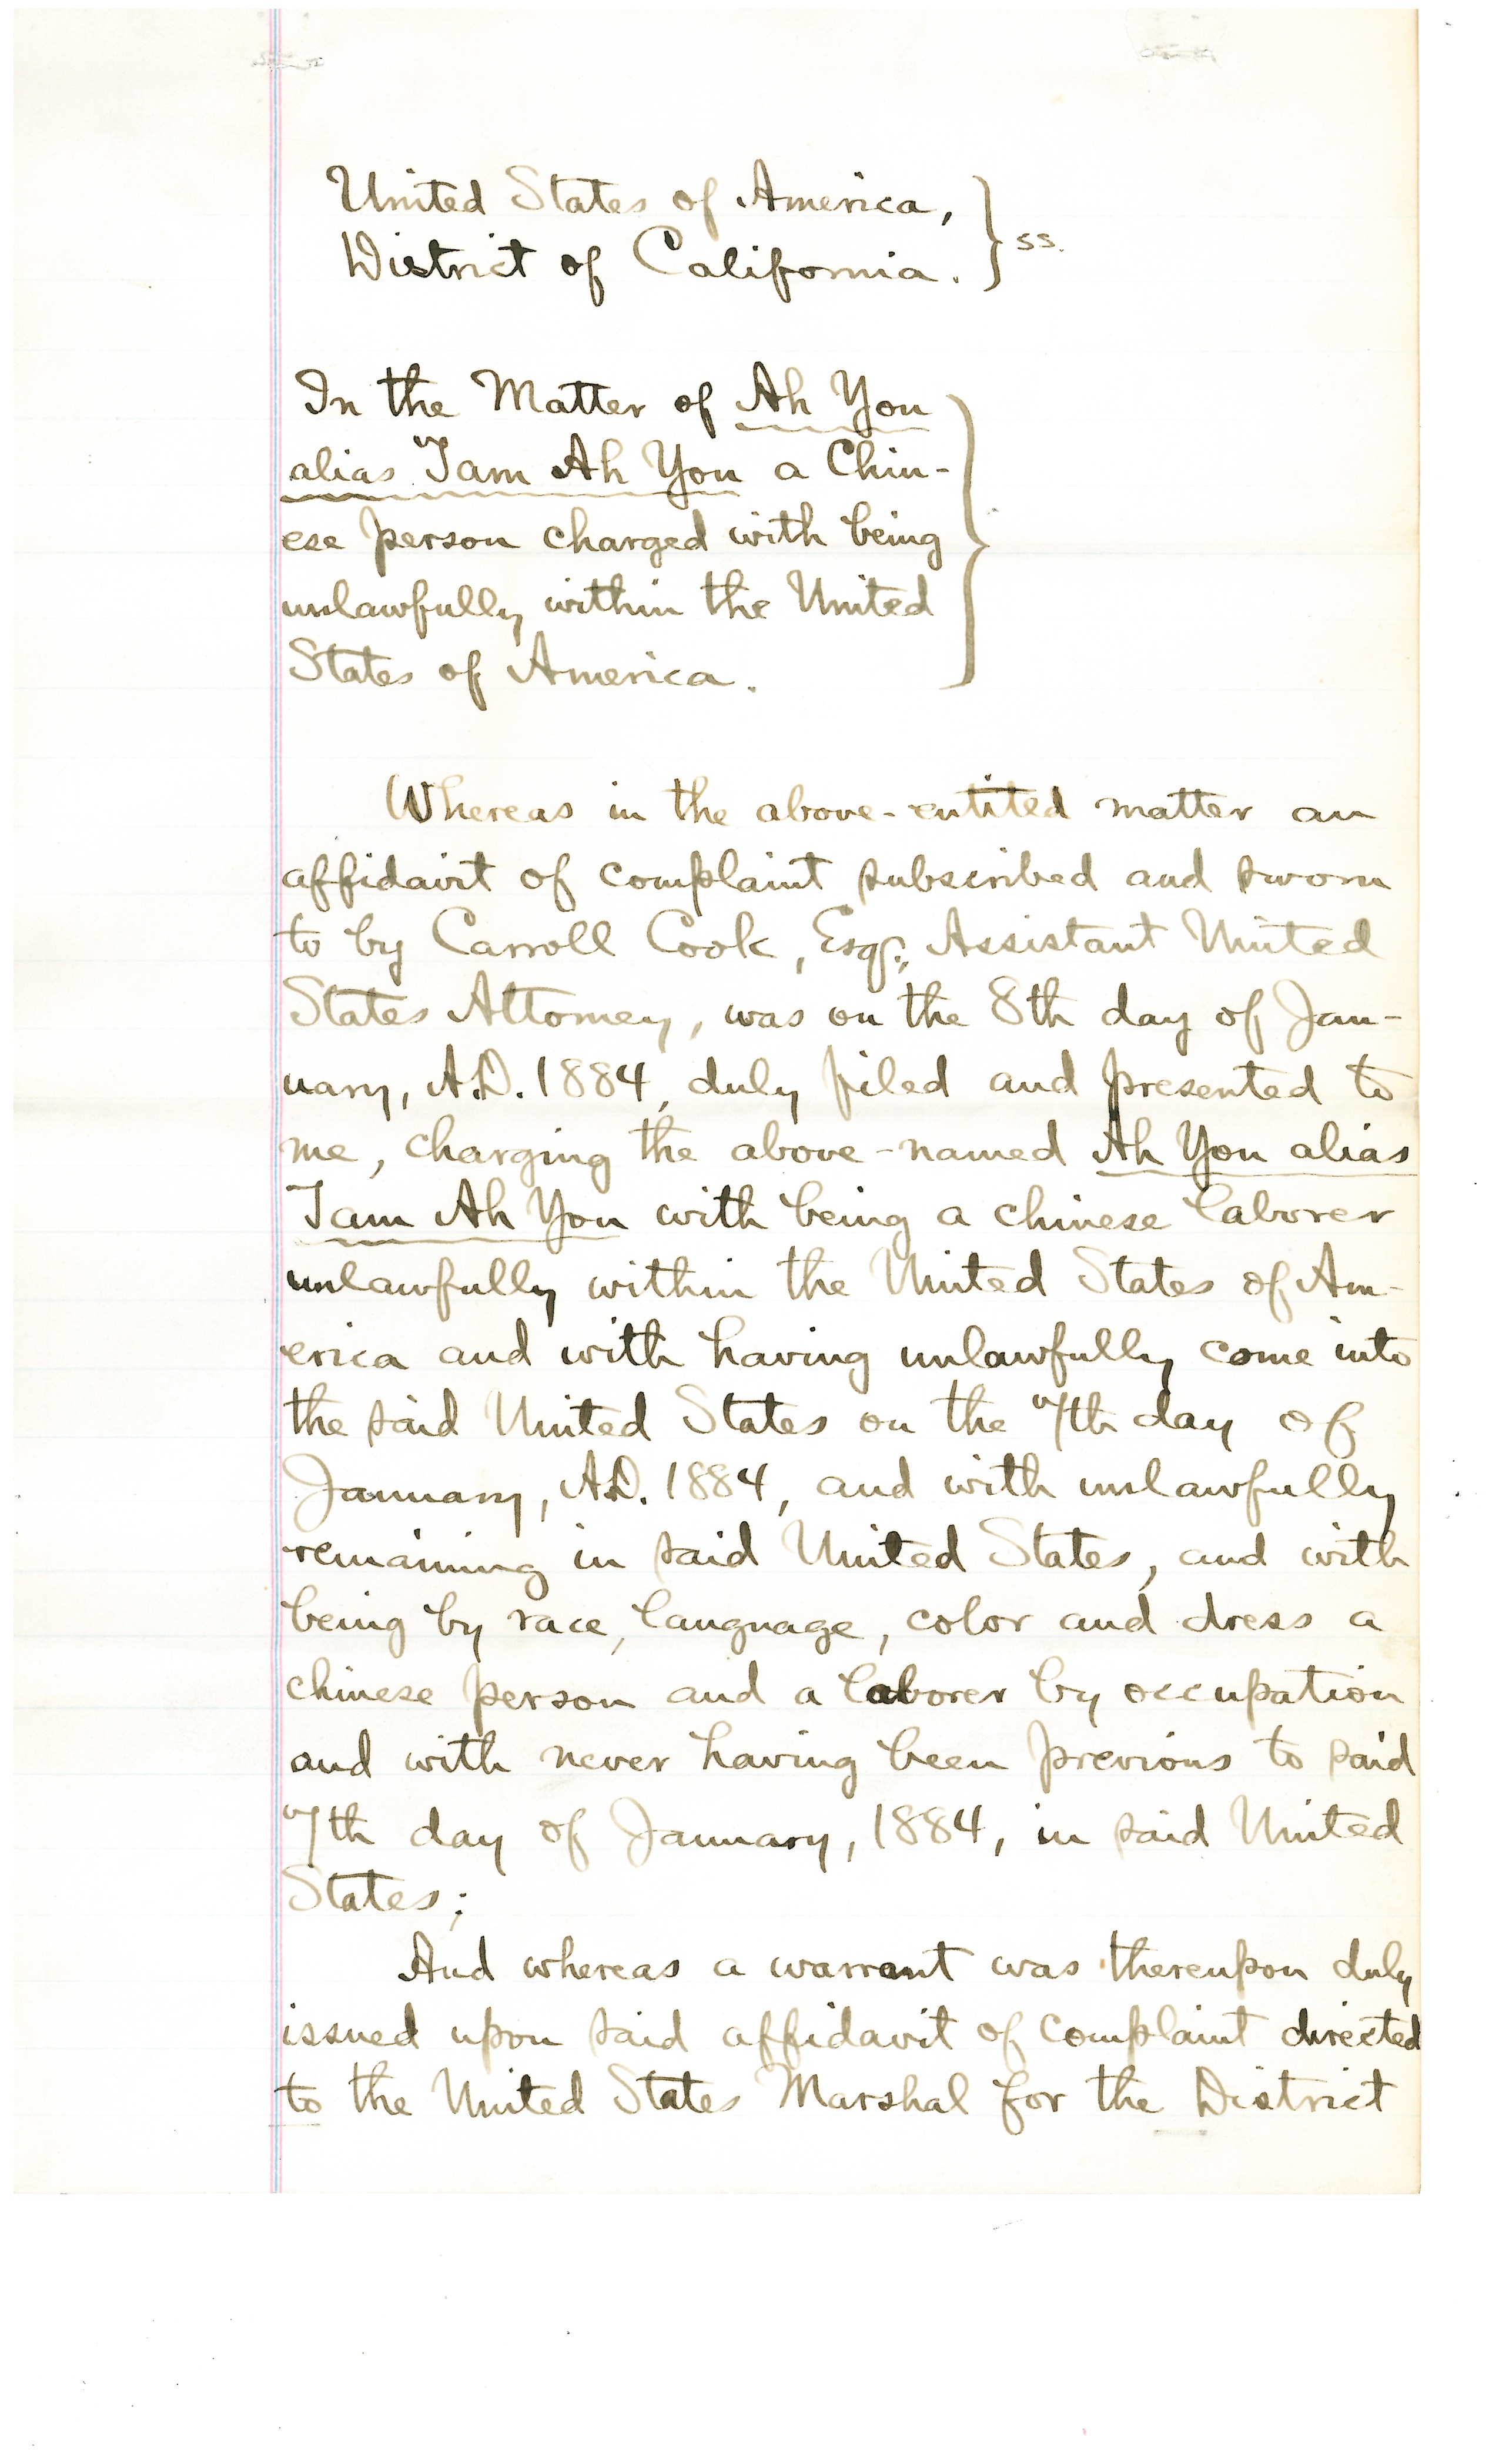 United States of America,
District of California. } ss.
In the Matter of Ah You
alias Tam Ah You a Chin-
ese person charged with being
unlawfully within the United
States of America.
Whereas in the above-entited matter an
affidavit of complaint subscribed and sworn
to by Carroll Cook, Esqr., Assistant United
States Attorney, was on the 8th day of Jan-
uary, A.D. 1884, duly filed and presented to
me, charging the above-named Ah You alias
Tam Ah You with being a chinese laborer
unlawfully within the United States of Am-
erica and with having unlawfully come into
the said United States on the 7th day of
January, A.D. 1884, and with unlawfully
remaining in said United States, and with
being by race, language, color and dress a
chinese person and a laborer by occupation
and with never having been previous to said
7th day of January, 1884, in said United
States;
And whereas a warrant was thereupon duly
issued upon said affidavit of complaint directed
to the United States Marshal for the District